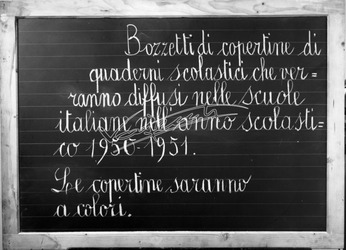 Bozzetti di copertine di
quaderni scolastici che ver=
ranno diffusi nelle scuole
italiane nell'anno scolasti=
co 1950-1951.
Le copertine saranno
a colori.